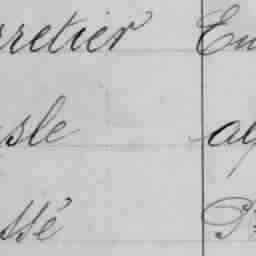 rretier En
sle al
ssé P